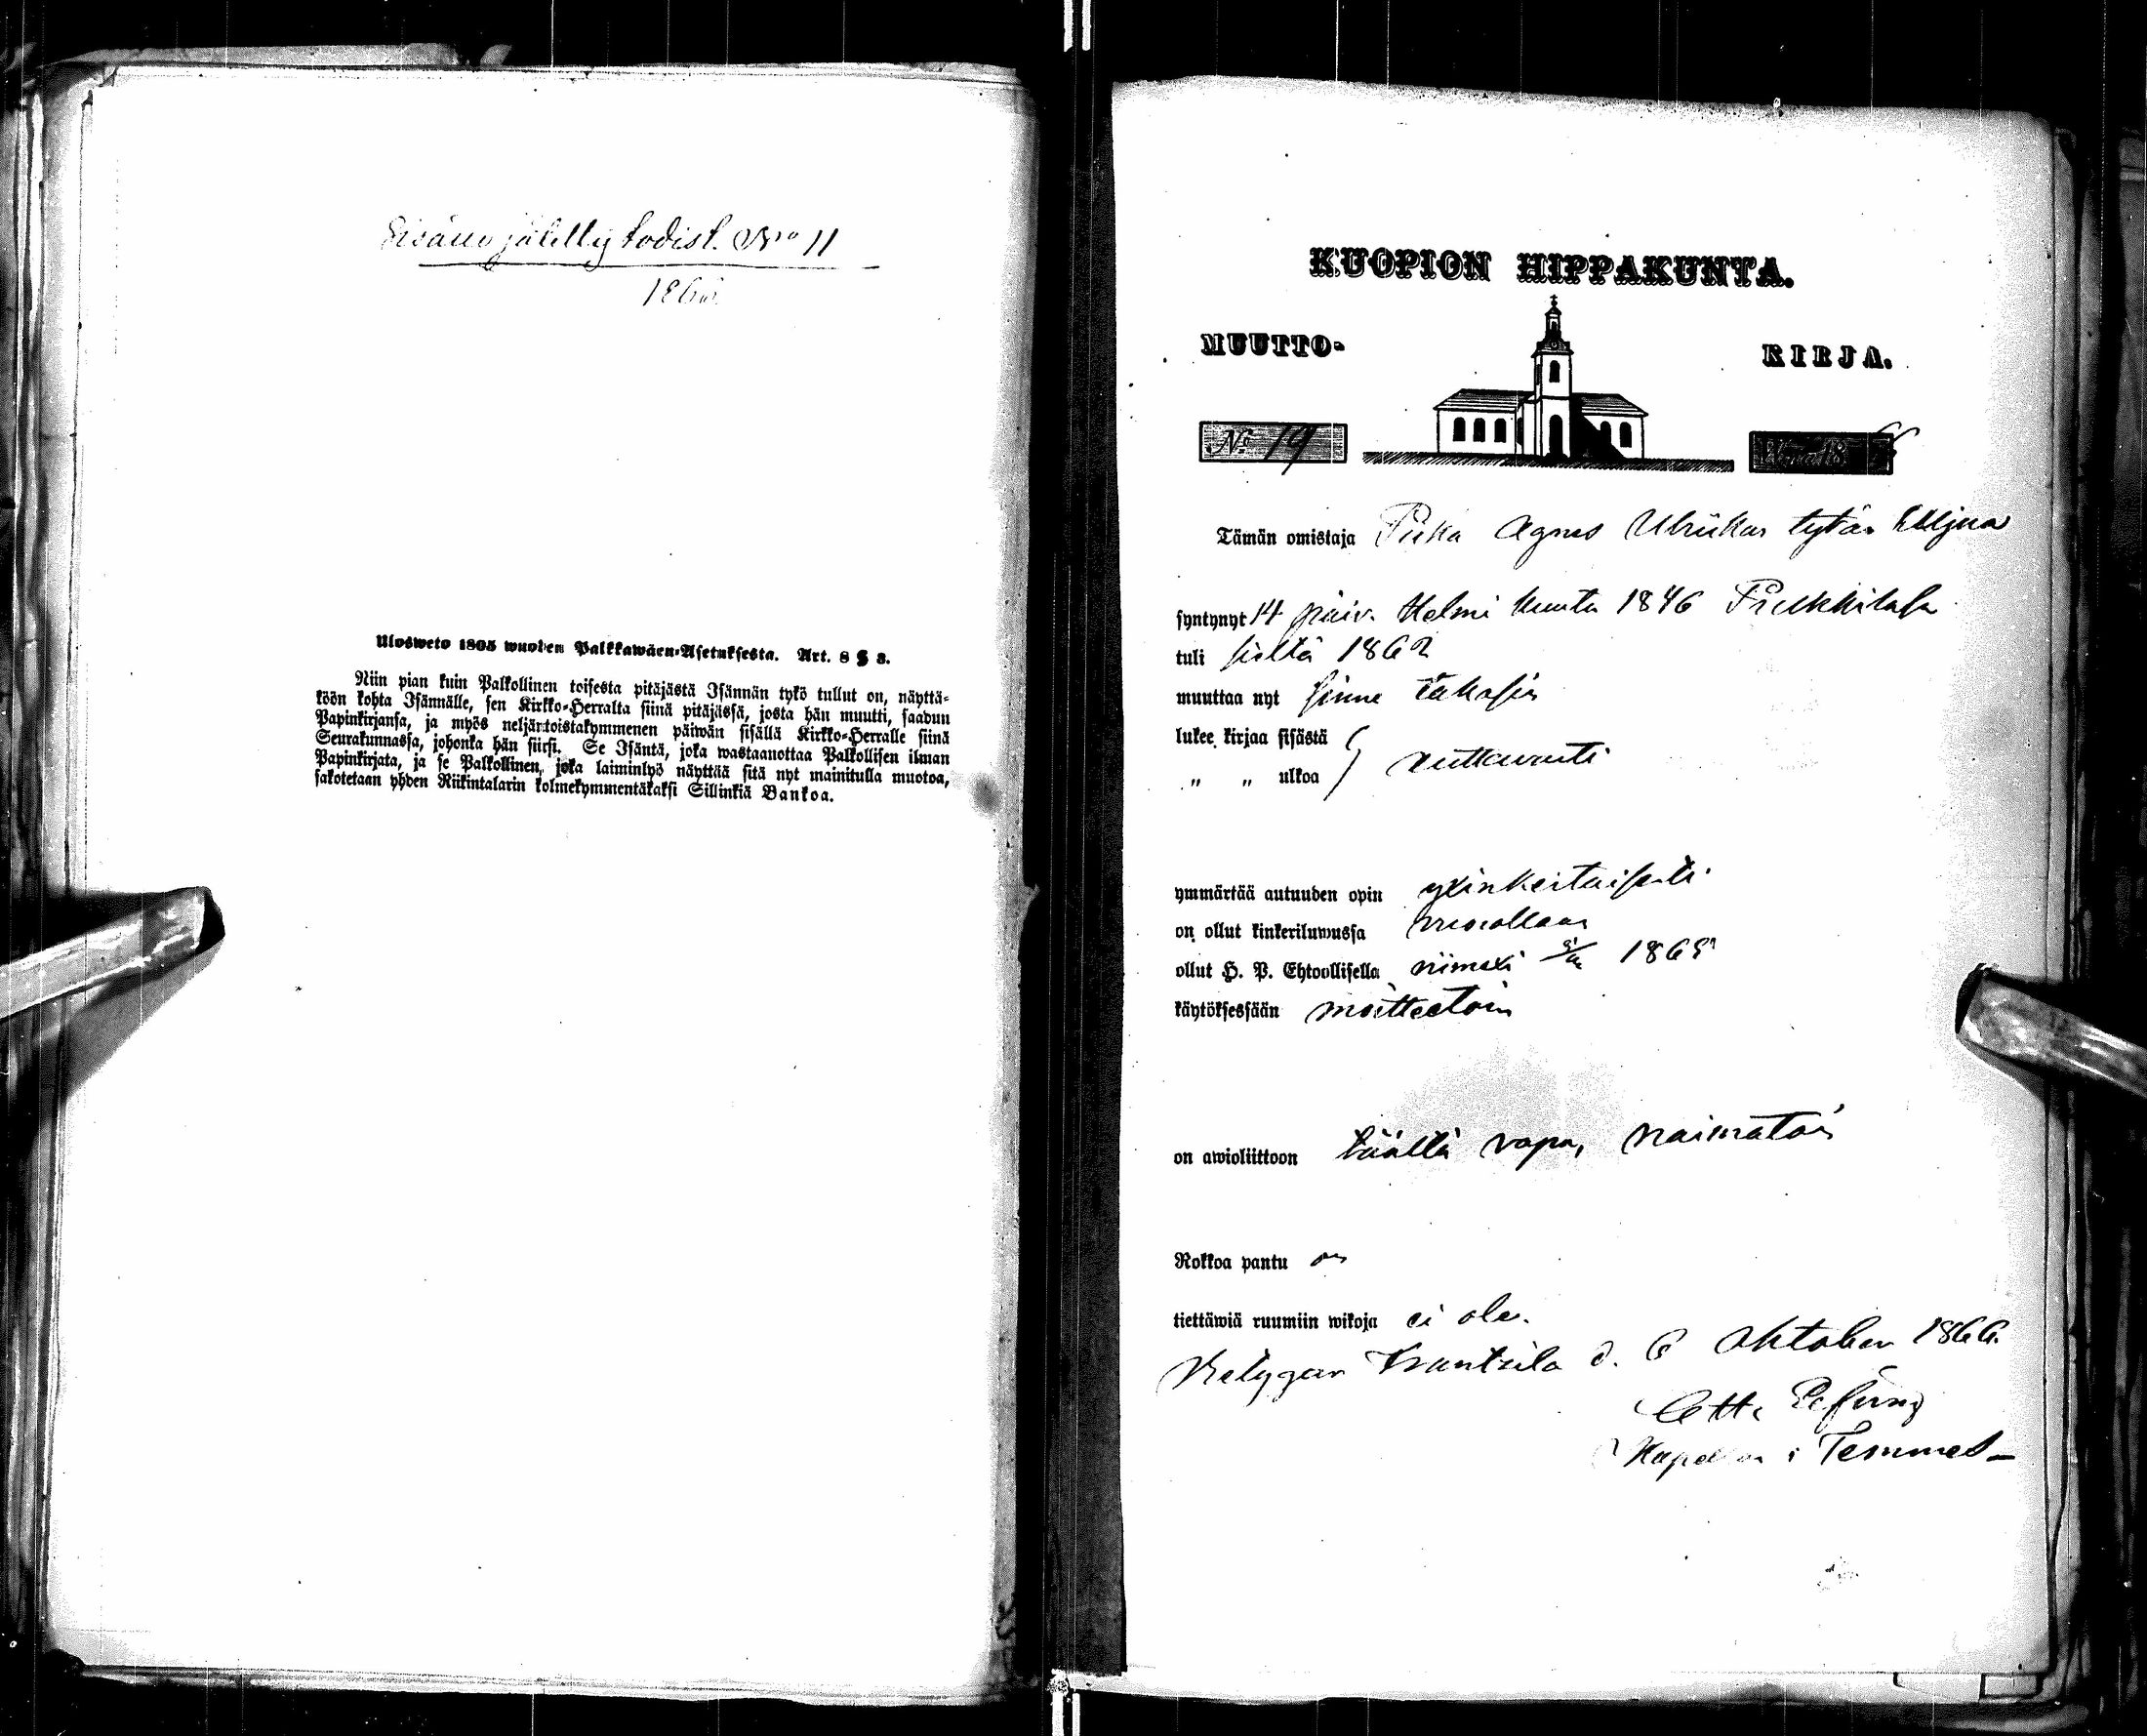 Sisään jätetty todist. No 11
1866.
Ulosweto 1805 wuoden Palkkawäen-Asetuksesta. Art. 8 § 3.
Niin pian kuin Palkollinen toisesta pitäjästä Isännän tykö tullut on, näyttä-
köön kohta Isännälle, sen Kirkko-Herralta siinä pitäjässä, josta hän muutti, saadun
Papinkirjansa, ja myös neljäntoistakymmenen päiwän sisällä Kirkko-Herralle siinä
Seurakunnassa, johonka hän siirsi. Se Isäntä, joka wastaanottaa Palkollisen ilman
Papinkirjata, ja se Palkollinen, joka laiminlyö näyttää sitä nyt mainitulla muotoa,
sakotetaan yhden Riikintalarin kolmekymmentäkaksi Sillinkiä Bankoa.
KUOPION HIPPAKUNTA.
MUUTTO- KIRJA.
No 19 18 66
Tämän omistaja Piika Agnes Ulriikan tytär
syntynyt 14 päiv. Helmi kuuta 1846 Pulkkilassa
tuli sieltä 1862
muuttaa nyt sinne takasin
lukee kirjaa sisästä
„ „ ulkoa auttavasti
ymmärtää autuuden opin yxinkertaisesti
on ollut kinkeriluwussa vuorollaan
ollut H. P. Ehtoollisella viimexi 1865
käytöksessään moitteetoin
on awioliittoon täältä vapa, naimatoin
Rokkoa pantu on
tiettäwiä ruumiin wikoja ei ole.
Betygar Frantsila d. 6 Oktober 1866.
Otto
Kapellan i Temmes